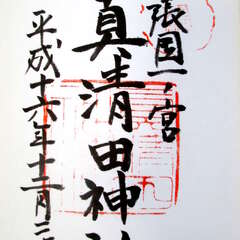 張国一ノ宮
真清田神
平成十六年十二月二